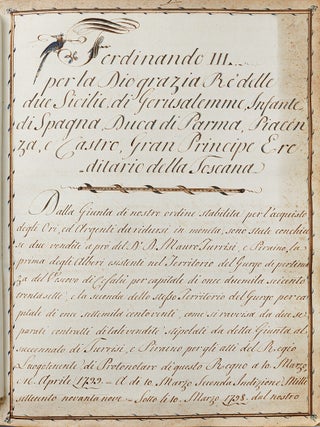 Ferdinando III.
per la Dio grazia Rè delle
due Sicilie, di Gerusalemme, Infante
di Spagna, Duca di Parma, Piacen
za, e Castro, Gran Principe Ere
ditario della Toscana
Dalla Giunta di nostro ordine stabilita per l'acquisto
degli Ori, ed Argenti da ridursi in moneta, sono state conchiu
se due vendite a prò del D. D. Mauro Turrisi, e Piraino, la
prima degli Alberi esistente nel Territorio del Gurgo di pertinen
za del Vescovo di Cefalù per capitale di once duemila seicento
trentasette, e la seconda dello stesso Territorio del Gurgo per ca
pitale di once settemila cento venti, come si ravvisa da due se
parati contratti di tali vendite stipolati da detta Giunta al
succennato di Turrisi, e Piraino per gli atti del Regio
Luogotenente di Protonotaro di questo Regno a 10. Marzo,
Aprile 1799 - A di 10. Marzo Seconda Indizione Mille
settecento novanta nove - Sotto li 10. Marzo 1798. dal nostro